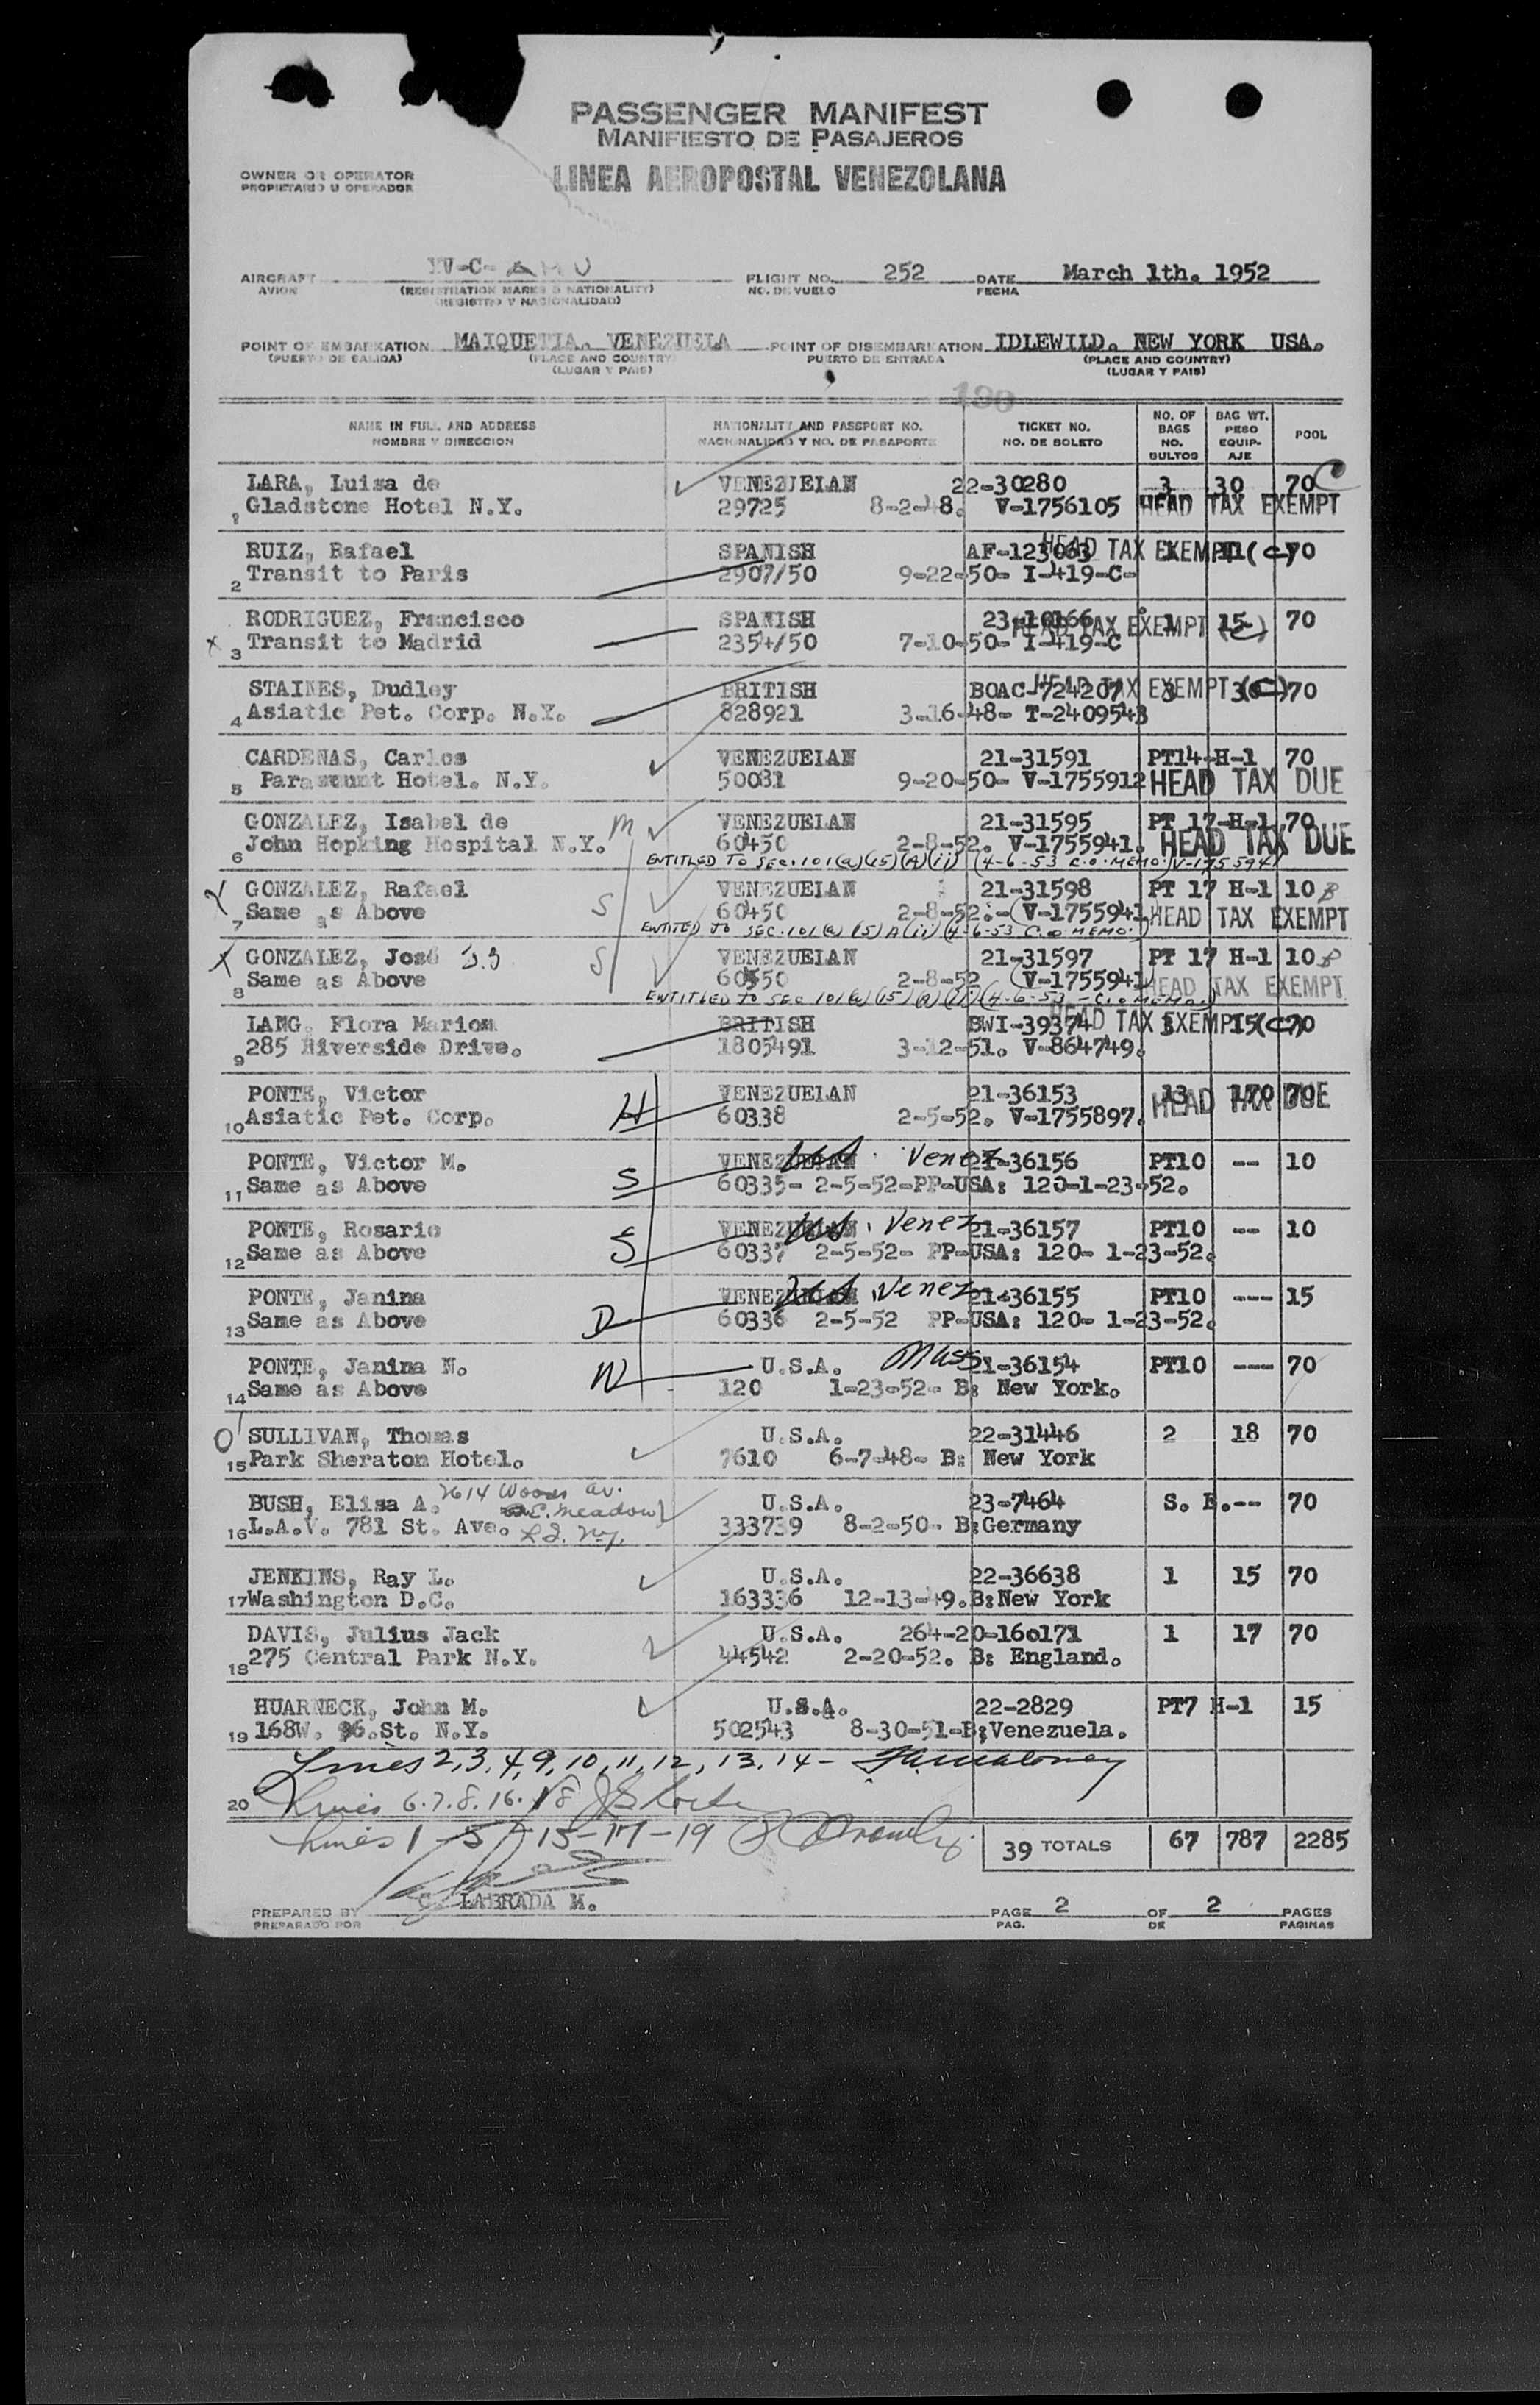 PASSENGER MANIFEST
MANIFIESTO DE PASAJEROS
OWNER OR OPERATOR
PROPIETARIO U OPERADOR
LINEA AEROPOSTAL VENEZOLANA
AIRCRAFT YV-C- FLIGHT NO. 252 DATE March 1th. 1952
AVION (REGISTRATION MARKS & NATIONALITY) NO. DE VUELO FECHA
(REGISTRO Y NACIONALIDAD)
POINT OF EMBARKATION MAIQUETIA. VENEZUELA POINT OF DISEMBARKATION IDLEWILD. NEW YORK USA.
(PUERTO DE SALIDA) (PLACE AND COUNTRY) PUERTO DE ENTRADA (PLACE AND COUNTRY)
(LUGAR Y PAIS) (LUGAR Y PAIS)
NAME IN FULL AND ADDRESS NATIONALITY AND PASSPORT NO. TICKET NO. NO. OF BAGS BAG WT. POOL
NOMBRE Y DIRECCION NACIONALIDAD Y NO. DE PASAPORTE NO. DE BOLETO NO. BULTOS PESO EQUIPAJE
LARA, Luisa de VENEZUELAN 22-30280 3 30 70 C
1 Gladstone Hotel N.Y. 29725 8-2-48. V-1756105 HEAD TAX EXEMPT
RUIZ, Rafael SPANISH AF-123063 HEAD TAX EXEMPT (C) 70
2 Transit to Paris 2907/50 9-22-50- I-419-C-
RODRIGUEZ, Francisco SPANISH 23-10166 HEAD TAX EXEMPT 1 15 (C) 70
x 3 Transit to Madrid 2354/50 7-10-50- I-419-C
STAINES, Dudley BRITISH BOAC-724207 HEAD TAX EXEMPT 3 (C) 70
4 Asiatic Pet. Corp. N.Y. 828921 3-16-48- T-2409543
CARDENAS, Carlos VENEZUELAN 21-31591 PT14-H-1 70
5 Paramount Hotel. N.Y. 50081 9-20-50- V-1755912 HEAD TAX DUE
GONZALEZ, Isabel de M VENEZUELAN 21-31595 PT 17-H-1 70
6 John Hopking Hospital N.Y. 60450 2-8-52. V-1755941. HEAD TAX DUE
ENTITLED TO SEC. 101(a)(15)(A)(ii) (4-6-53 C.O. MEMO.) V-175594)
GONZALEZ, Rafael S VENEZUELAN 21-31598 PT 17 H-1 10
7 Same as Above 60450 2-8-52.- (V-1755941 HEAD TAX EXEMPT
ENTITED TO SEC. 101(a)(15)A(ii) (4-6-53 C.O MEMO.)
GONZALEZ, José S VENEZUELAN 21-31597 PT 17 H-1 10
8 Same as Above 60550 2-8-52 (V-1755941) HEAD TAX EXEMPT
ENTITLED TO SEC 101(a)(15)(a)(ii)(4-6-53-C.O MEMO.)
LANG, Flora Mariom BRITISH BWI-39374 HEAD TAX EXEMPT 3 15 (C) 70
9 285 Riverside Drive. 1805491 3-12-51. V-864749.
PONTE, Victor H VENEZUELAN 21-36153 13 170 70
10 Asiatic Pet. Corp. 60338 2-5-52. V-1755897. HEAD TAX DUE
PONTE, Victor M. S VENEZUELAN Venez 21-36156 PT10 -- 10
11 Same as Above 60335- 2-5-52-PP-USA: 120-1-23-52.
PONTE, Rosario S VENEZUELAN Venez 21-36157 PT10 -- 10
12 Same as Above 60337 2-5-52- PP-USA: 120- 1-23-52.
PONTE, Janina D VENEZUELAN Venez 21-36155 PT10 --- 15
13 Same as Above 60336 2-5-52 PP-USA: 120- 1-23-52.
PONTE, Janina N. W U.S.A. 21-36154 PT10 --- 70
14 Same as Above 120 1-23-52- B: New York.
SULLIVAN, Thomas U.S.A. 22-31446 2 18 70
15 Park Sheraton Hotel. 7610 6-7-48- B: New York
BUSH, Elisa A. 2614 Woods Av. U.S.A. 23-7464 S. E.-- 70
16 L.A.V. 781 St. Ave. E. Meadow L.I. N.Y. 333739 8-2-50- B:Germany
JENKINS, Ray L. U.S.A. 22-36638 1 15 70
17 Washington D.C. 163336 12-13-49.B:New York
DAVIS, Julius Jack U.S.A. 264-20-160171 1 17 70
18 275 Central Park N.Y. 44542 2-20-52. B: England.
HUARNECK, John M. U.S.A. 22-2829 PT7 H-1 15
19 168W. 96.St. N.Y. 502543 8-30-51-B:Venezuela.
Lines 2,3,4,9,10,11,12,13,14 -
20 Lines 6.7.8.16.18
Lines 1-5 15-17-19
39 TOTALS 67 787 2285
PREPARED BY C. LABRADA M. PAGE 2 OF 2 PAGES
PREPARADO POR PAG. DE PAGINAS